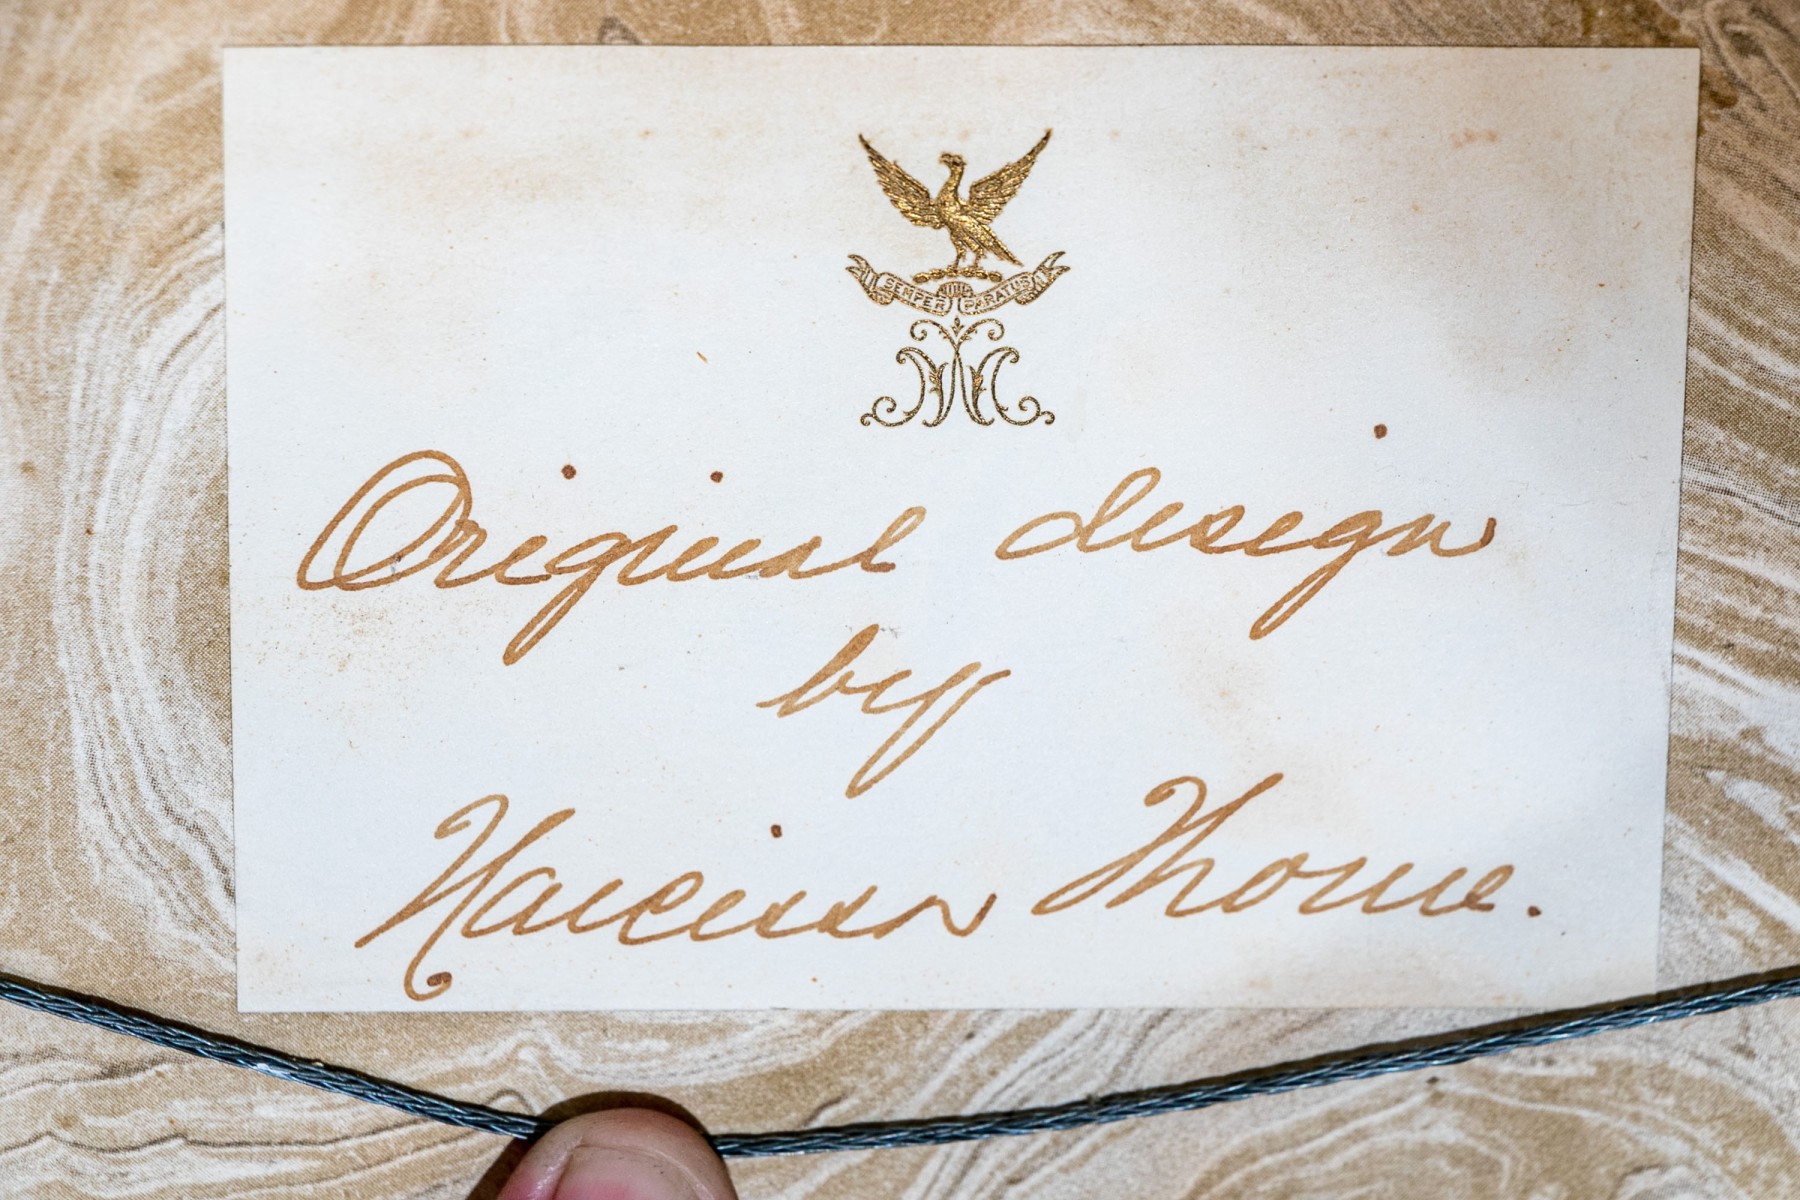 SEMPER PARATUS
Original design
by
Narcissa Thorne.